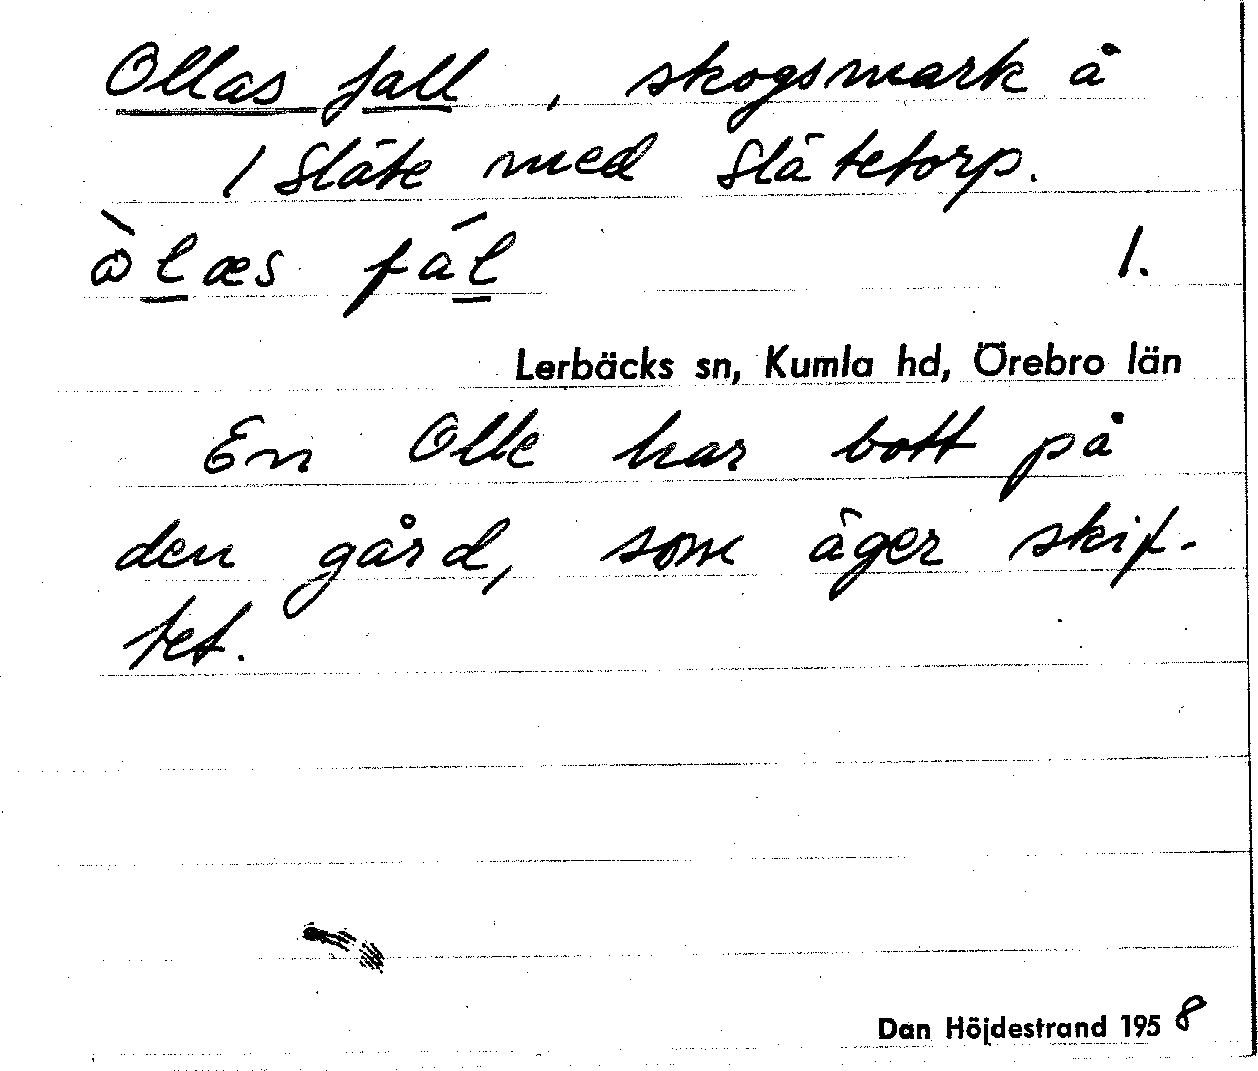 Ollas fall, skogsmark å
1 Släte med Slätetorp.
ꝏ̀læs fál 1.
Lerbäcks sn, Kumla hd, Örebro län
En Olle har bott på
den gård, som äger skif-
tet.
Dan Höjdestrand 1958